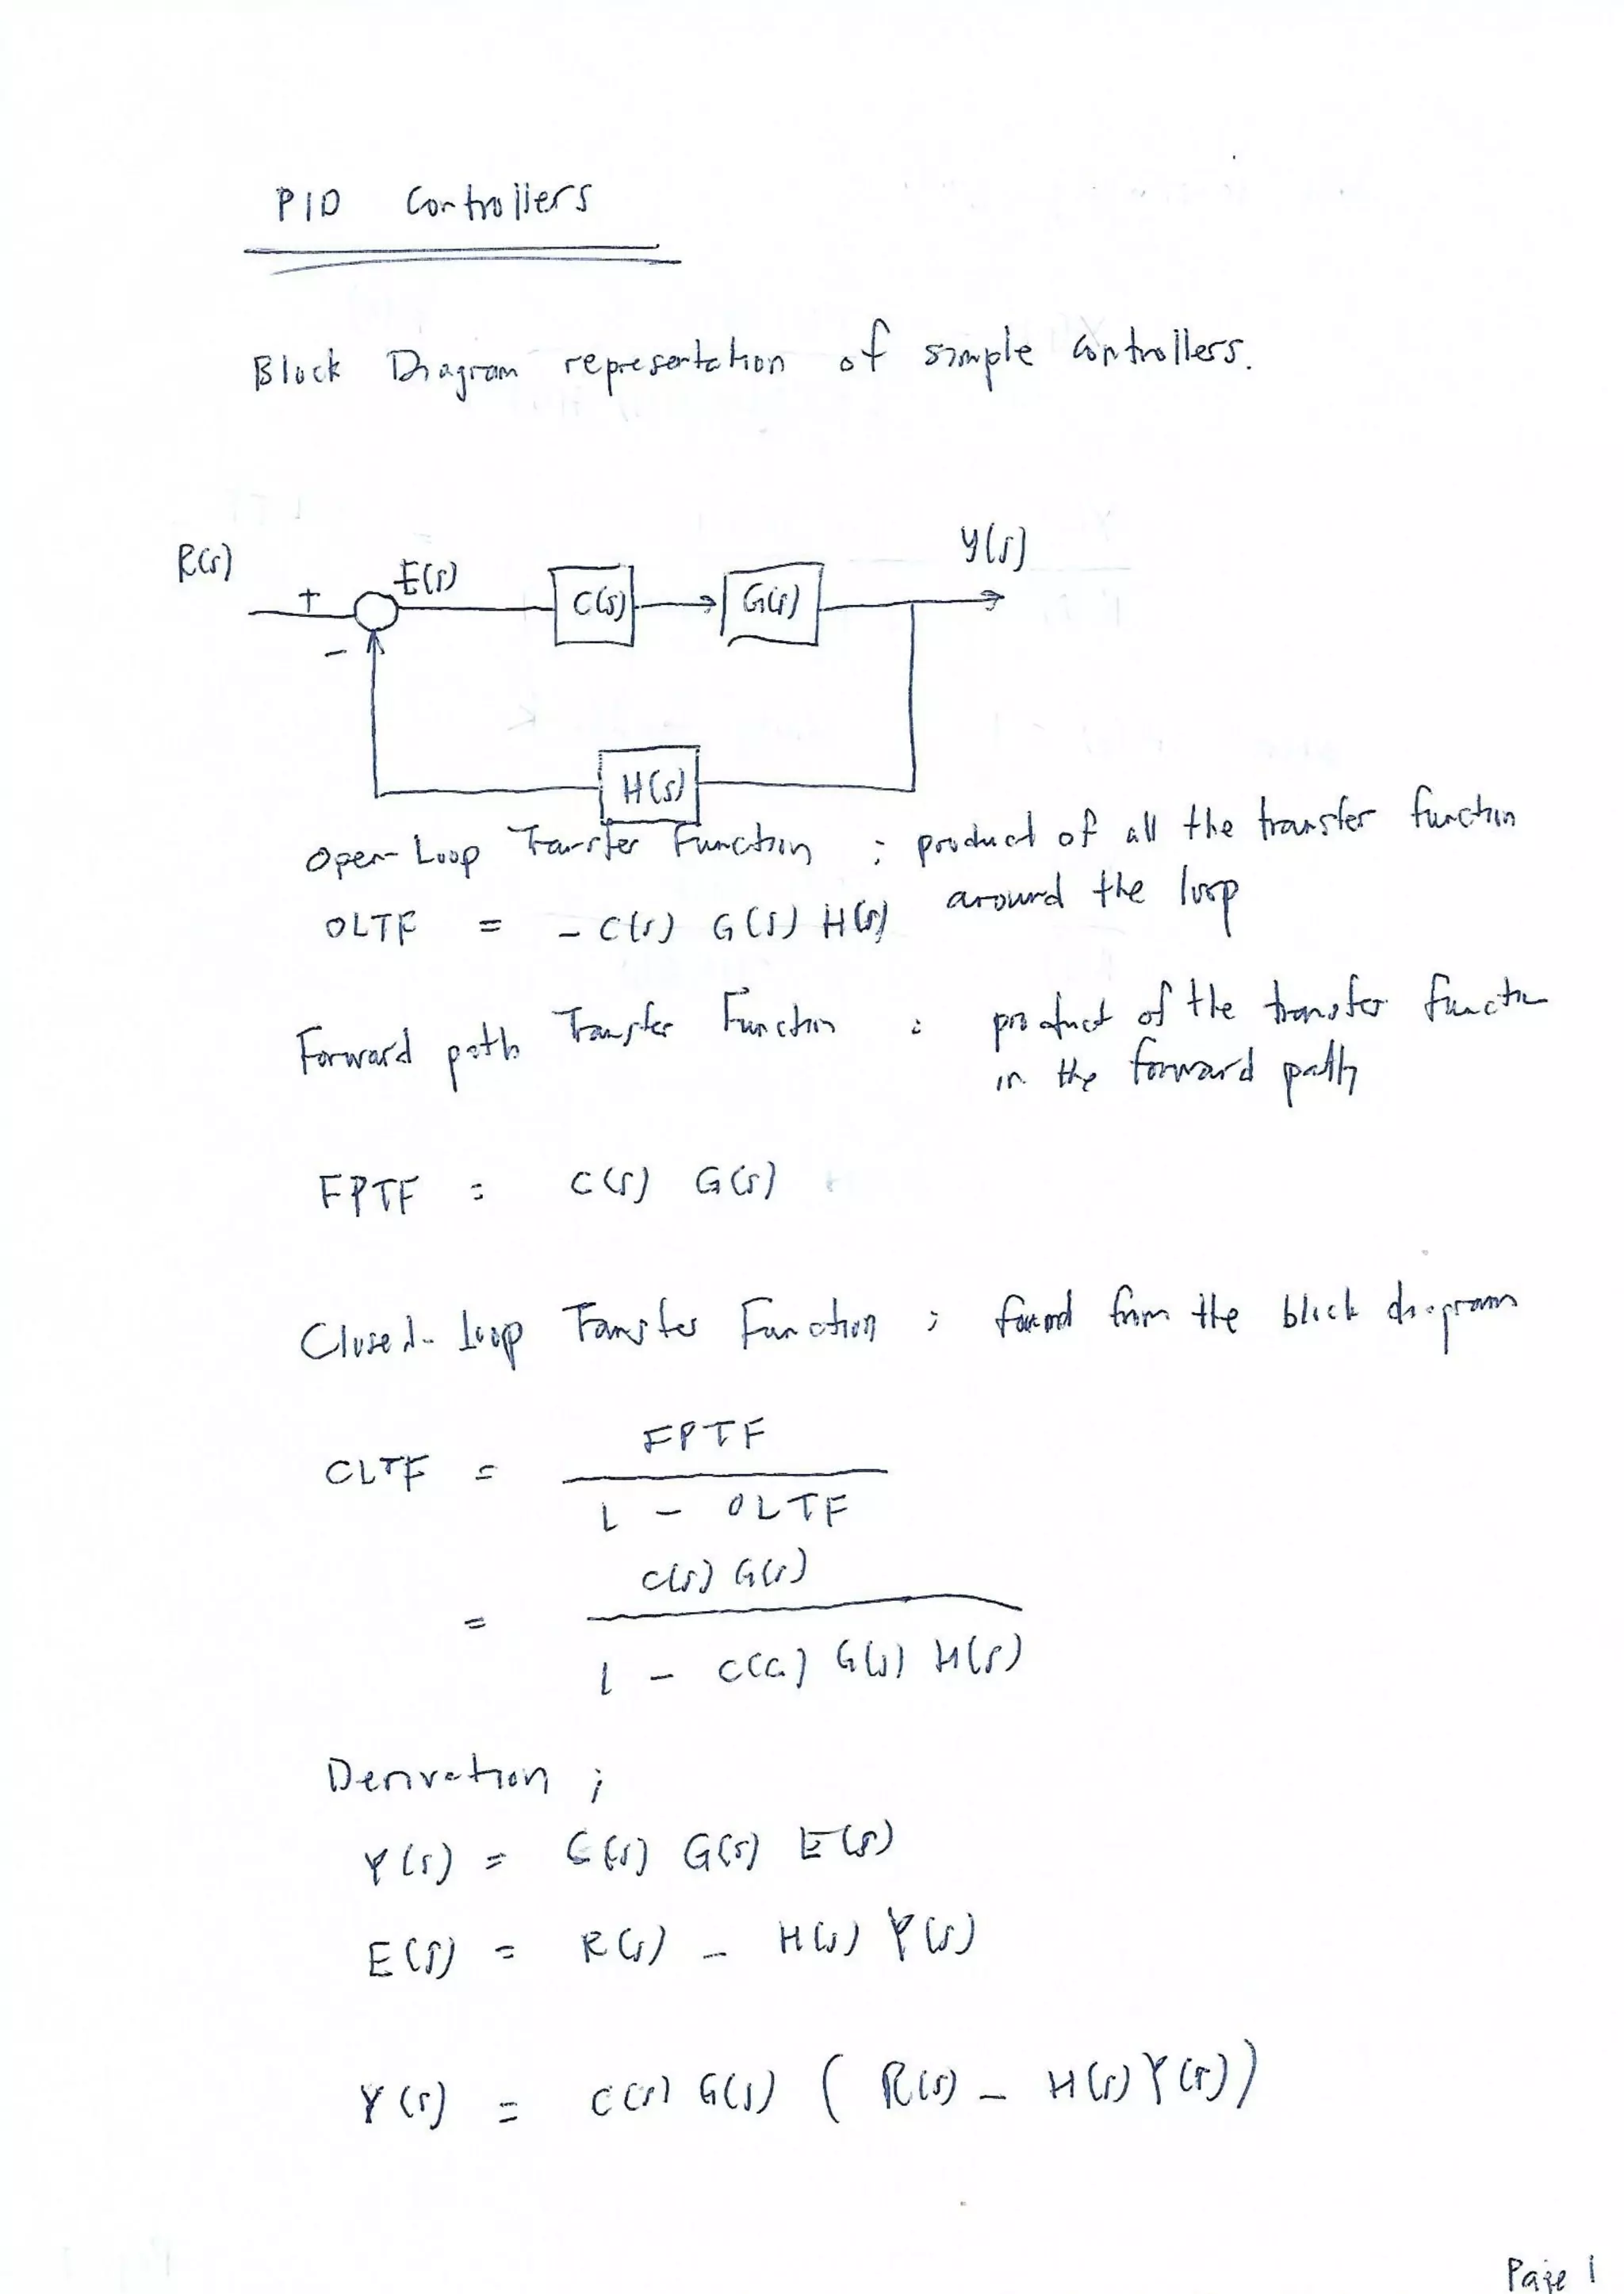 PID Controllers
Block Diagram representation of simple controllers.
R(s)
+
-
E(s)
C(s)
G(s)
Y(s)
H(s)
Open-Loop Transfer Function ; product of all the transfer function
around the loop
OLTF = - C(s) G(s) H(s)
Forward path Transfer Function : product of the transfer function
in the forward path
FPTF = C(s) G(s)
Closed-loop Transfer Function ; found from the block diagram
CLTF = FPTF
1 - OLTF
= C(s) G(s)
1 - C(s) G(s) H(s)
Derivation ;
Y(s) = C(s) G(s) E(s)
E(s) = R(s) - H(s) Y(s)
Y(s) = C(s) G(s) ( R(s) - H(s) Y(s))
Page 1